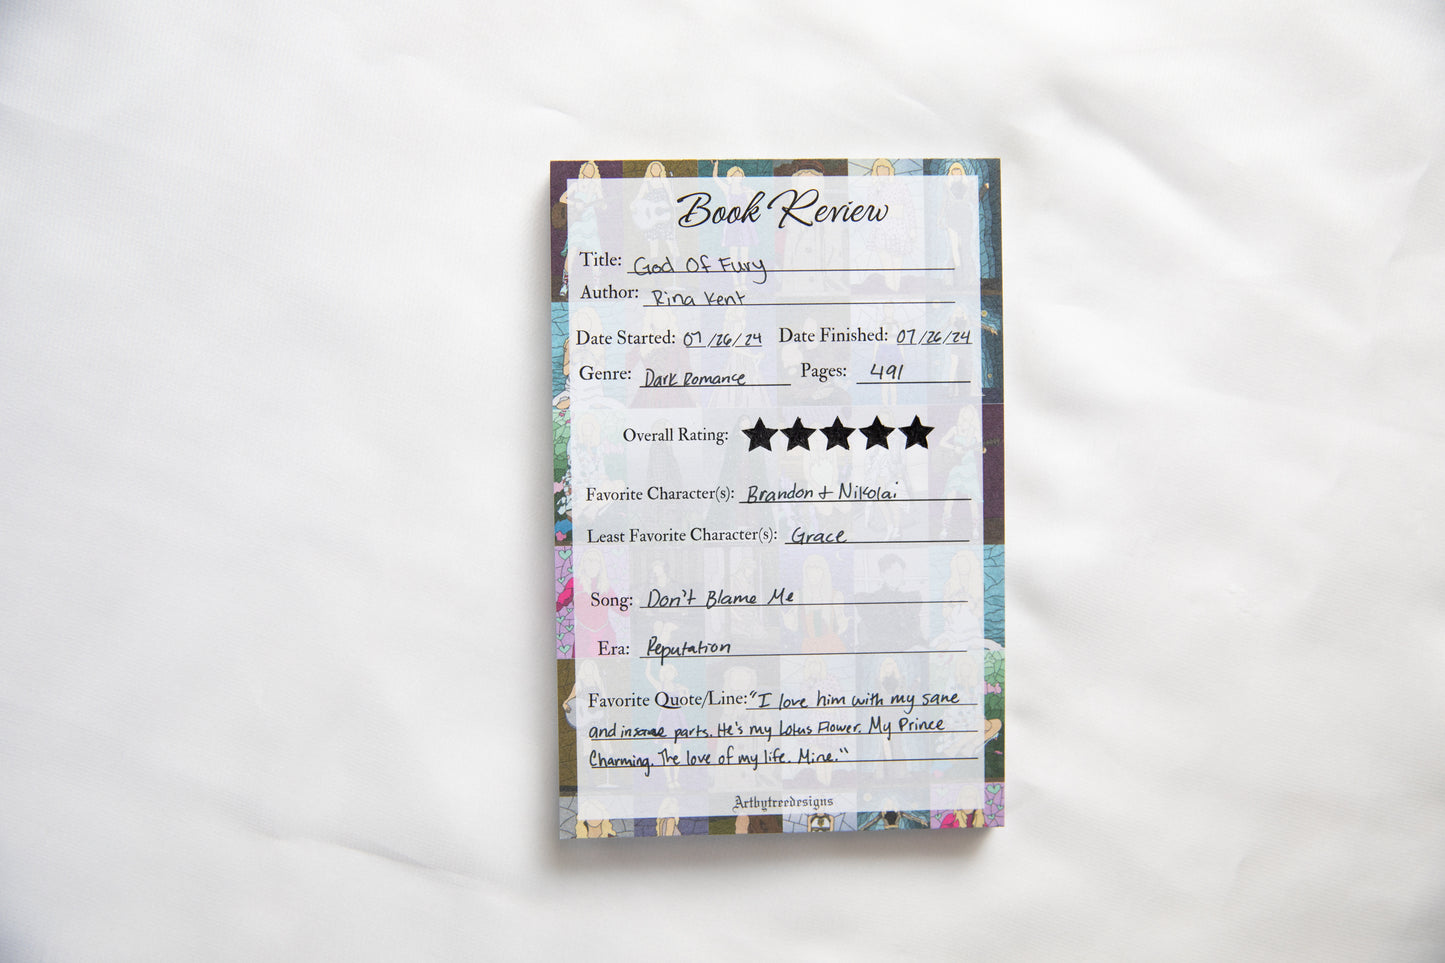 Book Review
Title: God Of Fury
Author: Rina Kent
Date Started: 07/26/24 Date Finished: 07/26/24
Genre: Dark Romance Pages: 491
Overall Rating: ★★★★★
Favorite Character(s): Brandon + Nikolai
Least Favorite Character(s): Grace
Song: Don't Blame Me
Era: Reputation
Favorite Quote/Line: "I love him with my sane
and insane parts. He's my Lotus Flower. My Prince
Charming. The love of my life. Mine."
Artbytreedesigns